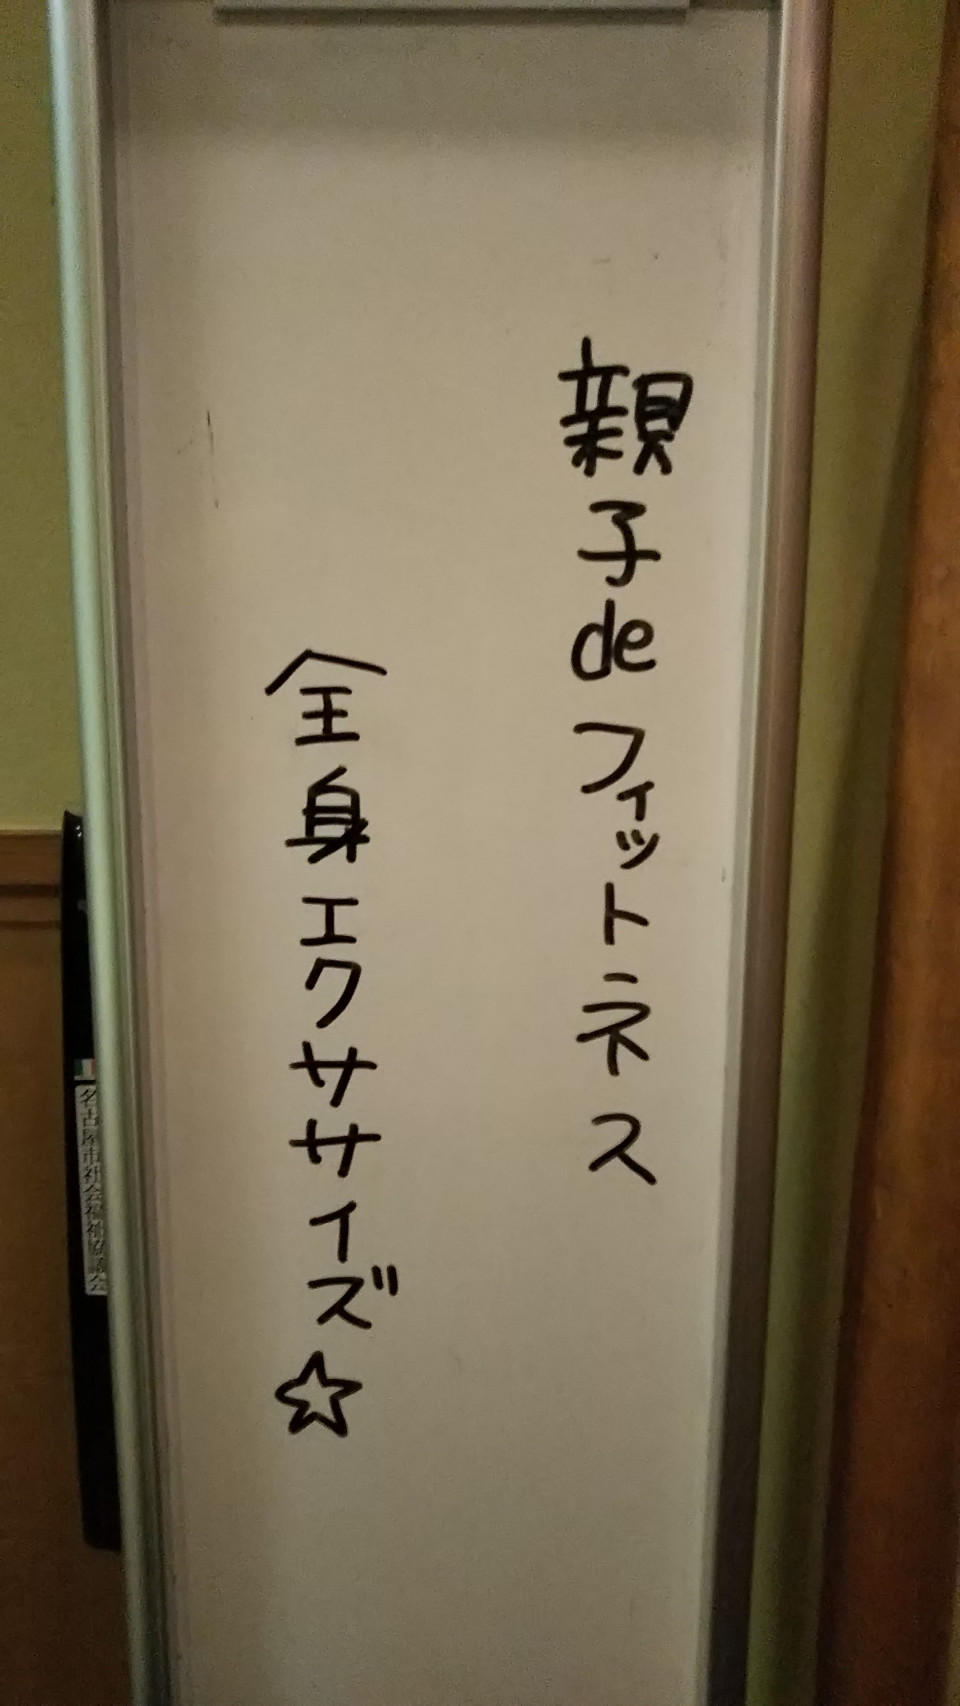 親子deフィットネス
全身エクササイズ☆
名古屋市社会福祉協議会